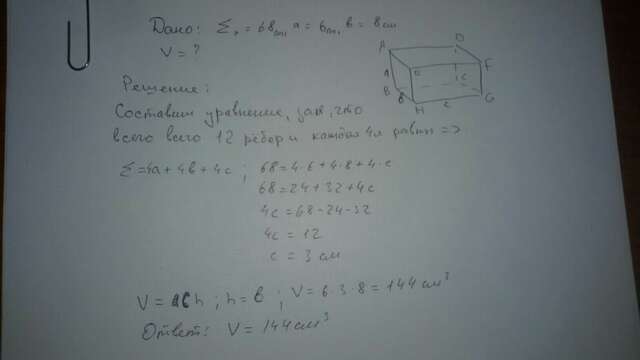 Дано: Σ, = 68 см, a = 6 см, в = 8 см
V = ?
Решение:
Составим уравнение, зная, что
всего всего 12 рёбер и каждая 4я равны =>
Σ=4a+4в+4c ; 68=4·6+4·8+4·c
68=24+32+4c
4c=68-24-32
4c = 12
c = 3 см
V = ach ; h = в ; V = 6·3·8 = 144 см³
Ответ: V = 144 см³
A
D
F
a
c
B
в
H
c
G